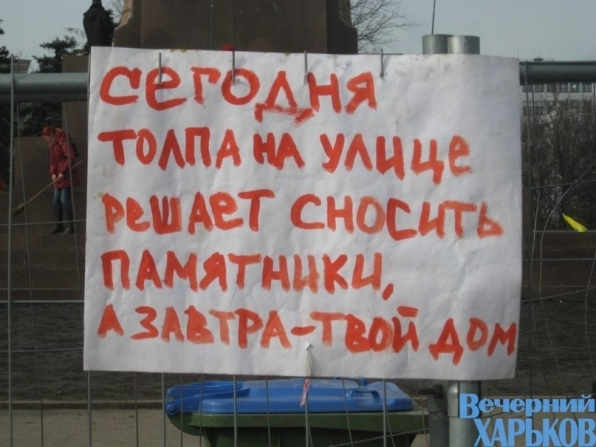 СЕГОДНЯ
ТОЛПА НА УЛИЦЕ
РЕШАЕТ СНОСИТЬ
ПАМЯТНИКИ,
А ЗАВТРА-ТВОЙ ДОМ
Вечерний
ХАРЬКОВ